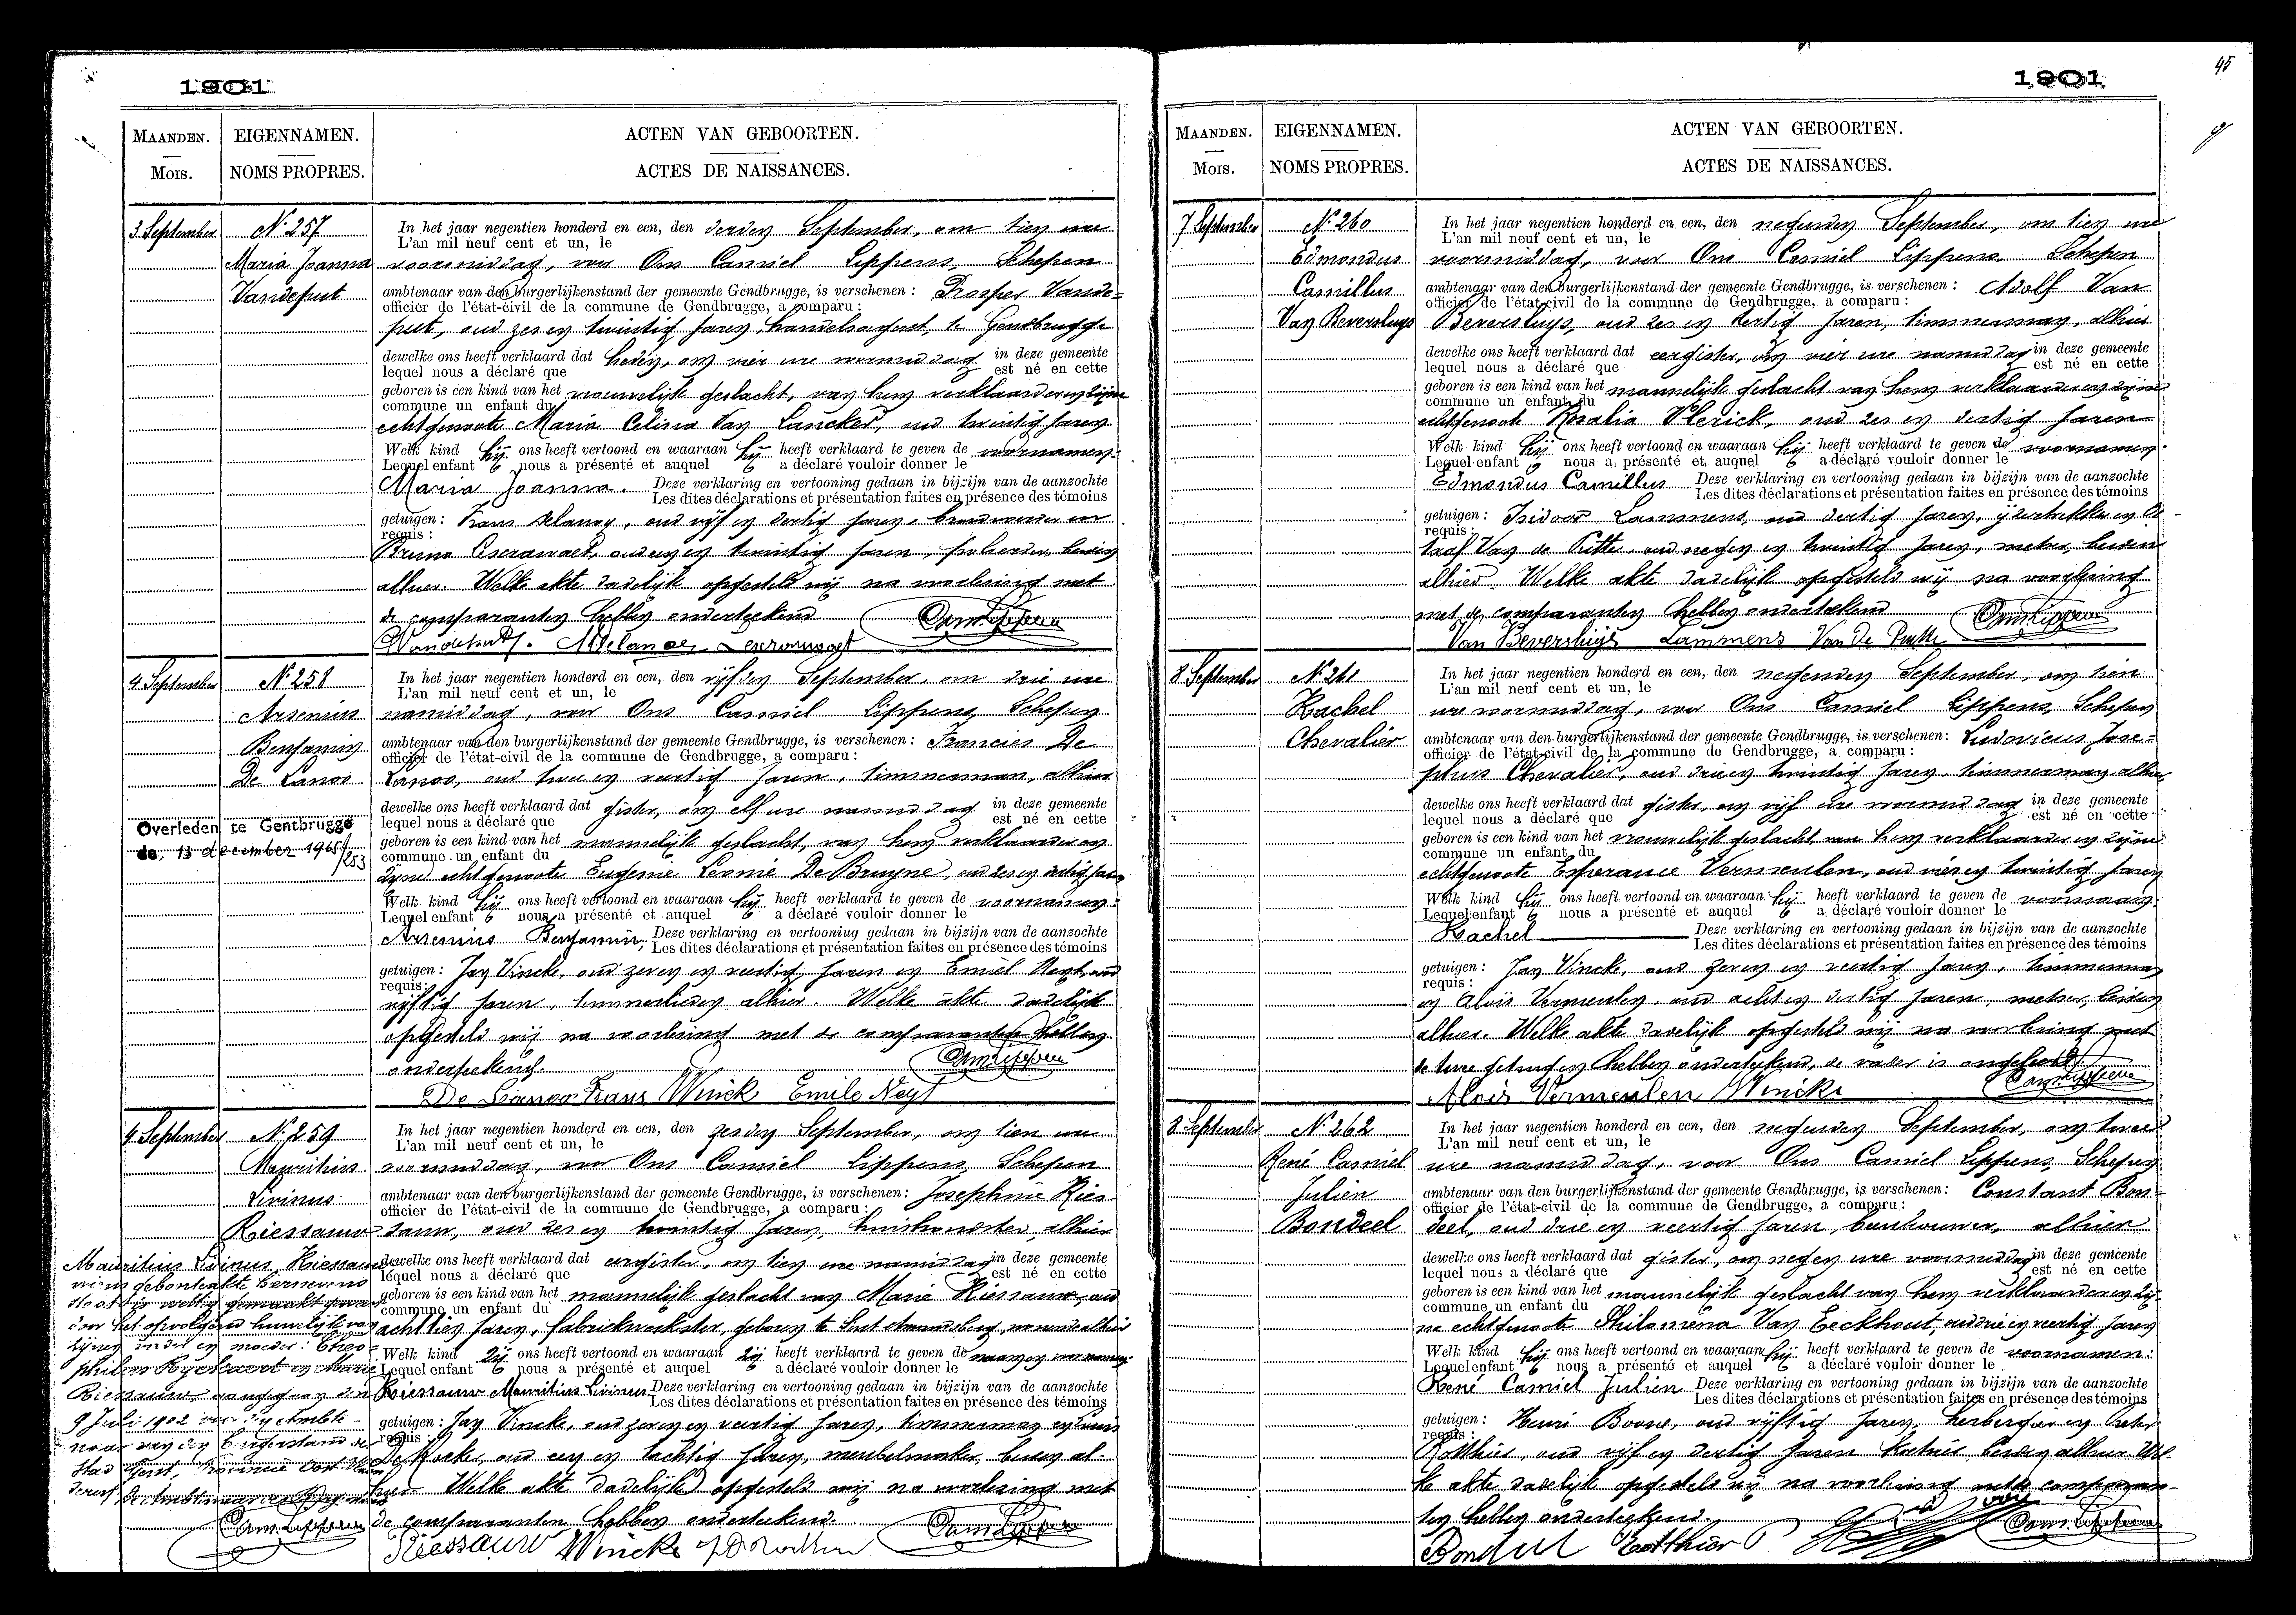 1901
MAANDEN.
Mois.
EIGENNAMEN.
NOMS PROPRES.
ACTEN VAN GEBOORTEN.
ACTES DE NAISSANCES.
3. September
N. 257
Maria Joanna
Vandeput
In het jaar negentien honderd en een, den derden September, om tien ure
L'an mil neuf cent et un, le
voormiddag, voor Ons Camiel Lippens, Schepen
ambtenaar van den burgerlijkenstand der gemeente Gendbrugge, is verschenen : Prosper Vande-
officier de l'état-civil de la commune de Gendbrugge, a comparu :
put, oud zes en twintig jaren, handelsagent, te Gendbrugge
dewelke ons heeft verklaard dat heden, om vier ure voormiddag in deze gemeente
lequel nous a déclaré que est né en cette
geboren is een kind van het vrouwelijk geslacht, van hem verklaarder en zijne
commune un enfant du
echtgenoote Maria Celina Van Lancker, oud twintig jaren
Welk kind hij ons heeft vertoond en waaraan hij heeft verklaard te geven de voornamen:
Lequel enfant nous a présenté et auquel a déclaré vouloir donner le
Maria Joanna. Deze verklaring en vertooning gedaan in bijzijn van de aanzochte
Les dites déclarations et présentation faites en présence des témoins
getuigen : Frans Delanoy, oud vijf en dertig jaren, en
requis :
Bruno oud en twintig jaren, beiden
alhier. Welke akte dadelijk opgesteld wij na voorlezing met
de comparanten hebben onderteekend
4. September
N. 258
Arsenius
Benjamin
De Lanoo
Overleden te Gentbrugge
de, 13 december 1965
/253
In het jaar negentien honderd en een, den vijfden September, om drie ure
L'an mil neuf cent et un, le
namiddag, voor Ons Camiel Lippens, Schepen
ambtenaar van den burgerlijkenstand der gemeente Gendbrugge, is verschenen : Francies De
officier de l'état-civil de la commune de Gendbrugge, a comparu :
Lanoo, oud twee en veertig jaren, timmerman, alhier
dewelke ons heeft verklaard dat gister, om elf ure namiddag in deze gemeente
lequel nous a déclaré que est né en cette
geboren is een kind van het mannelijk geslacht, van hem verklaarder en
commune un enfant du
zijne echtgenoote Eugenie Leonie De Bruyne, oud zes en dertig jaren
Welk kind hij ons heeft vertoond en waaraan hij heeft verklaard te geven de voornamen:
Lequel enfant nous a présenté et auquel a déclaré vouloir donner le
Arsenius Benjamin, Deze verklaring en vertooning gedaan in bijzijn van de aanzochte
Les dites déclarations et présentation faites en présence des témoins
getuigen : Jan Vincke, oud zeven en veertig jaren en Emiel Neyt, oud
requis :
vijftig jaren, timmerlieden alhier. Welke akte dadelijk
opgesteld wij na voorlezing met de comparanten hebben
onderteekend.
De Lanoo Frans Vinck Emile Neyt
4. September
N. 259
Mauritius
Livinus
Riessauw
In het jaar negentien honderd en een, den zesden September, om tien ure
L'an mil neuf cent et un, le
voormiddag, voor Ons Camiel Lippens, Schepen
ambtenaar van den burgerlijkenstand der gemeente Gendbrugge, is verschenen : Josephine Ries-
officier de l'état-civil de la commune de Gendbrugge, a comparu :
sauw, oud zes en twintig jaren, alhier
dewelke ons heeft verklaard dat eergister, om tien ure namiddag in deze gemeente
lequel nous a déclaré que est né en cette
geboren is een kind van het mannelijk geslacht van Marie Riessauw, oud
commune un enfant du
achttien jaren, fabriekwerkster, geboren te Sint Amandsberg, wonende alhier
Welk kind zij ons heeft vertoond en waaraan zij heeft verklaard te geven de naam en voornamen
Lequel enfant nous a présenté et auquel a déclaré vouloir donner le
Riessauw Mauritius Livinus Deze verklaring en vertooning gedaan in bijzijn van de aanzochte
Les dites déclarations et présentation faites en présence des témoins
getuigen : Jan Vincke, oud zeven en veertig jaren, timmerman en
requis :
De oud een en tachtig jaren, meubelmaker, beiden al-
hier Welke akte dadelijk opgesteld wij na voorlezing met
de comparanten hebben onderteekend.
Riessauw Vincke
Mauritius Livinus Riessauw
door het opvolgend huwelijk van
zijnen vader en moeder: Theo-
phiel Ryckaert en Marie
Riessauw, aangegaan den
9 Juli 1902 voor den Ambte-
naar van den Burgerstand der
Stad Gent,
1901
45
MAANDEN.
Mois.
EIGENNAMEN.
NOMS PROPRES.
ACTEN VAN GEBOORTEN.
ACTES DE NAISSANCES.
7. September
N. 260
Edmondus
Camillus
Van Beversluys
In het jaar negentien honderd en een, den negenden September, om tien ure
L'an mil neuf cent et un, le
voormiddag, voor Ons Camiel Lippens Schepen
ambtenaar van den burgerlijkenstand der gemeente Gendbrugge, is verschenen : Adolf Van
officier de l'état-civil de la commune de Gendbrugge, a comparu :
Beversluys, oud zes en dertig jaren, timmerman, alhier
dewelke ons heeft verklaard dat eergister, om vier ure namiddag in deze gemeente
lequel nous a déclaré que est né en cette
geboren is een kind van het mannelijk geslacht van hem verklaarder en zijne
commune un enfant du
echtgenoote Rosalia Vlerick, oud zes en dertig jaren
Welk kind hij ons heeft vertoond en waaraan hij heeft verklaard te geven de voornamen:
Lequel enfant nous a présenté et auquel a déclaré vouloir donner le
Edmondus Camillus Deze verklaring en vertooning gedaan in bijzijn van de aanzochte
Les dites déclarations et présentation faites en présence des témoins
getuigen : Isidoor Lammens, oud dertig jaren, en
requis :
Van de Putte, oud negen en twintig jaren, metser, beiden
alhier. Welke akte dadelijk opgesteld wij na voorlezing
met de comparanten hebben onderteekend
Van Beversluys Lammens Van De Putte
8. September
N. 261
Rachel
Chevalier
In het jaar negentien honderd en een, den negenden September, om tien
L'an mil neuf cent et un, le
ure voormiddag, voor Ons Camiel Lippens, Schepen
ambtenaar van den burgerlijkenstand der gemeente Gendbrugge, is verschenen: Ludovicus Jose-
officier de l'état-civil de la commune de Gendbrugge, a comparu :
phus Chevalier, oud drie en twintig jaren, timmerman alhier
dewelke ons heeft verklaard dat gister, om vijf ure voormiddag in deze gemeente
lequel nous a déclaré que est né en cette
geboren is een kind van het vrouwelijk geslacht, van hem verklaarder en zijne
commune un enfant du
echtgenoote Esperance Vermeulen, oud vier en twintig jaren
Welk kind hij ons heeft vertoond en waaraan hij heeft verklaard te geven de voornaam:
Lequel enfant nous a présenté et auquel a déclaré vouloir donner le
Rachel Deze verklaring en vertooning gedaan in bijzijn van de aanzochte
Les dites déclarations et présentation faites en présence des témoins
getuigen : Jan Vincke, oud zeven en veertig jaren, timmerman
requis :
en Alois Vermeulen, oud acht en dertig jaren, metser, beiden
alhier. Welke akte dadelijk opgesteld wij na voorlezing met
de twee getuigen hebben onderteekend, de vader is ongeleerd
Alois Vermeulen Vincke
8. September
N. 262
René Camiel
Julien
Bondeel
In het jaar negentien honderd en een, den negenden September, om twee
L'an mil neuf cent et un, le
ure namiddag, voor Ons Camiel Lippens, Schepen
ambtenaar van den burgerlijkenstand der gemeente Gendbrugge, is verschenen: Constant Bon-
officier de l'état-civil de la commune de Gendbrugge, a comparu :
deel, oud drie en veertig jaren, alhier
dewelke ons heeft verklaard dat gister, om negen ure voormiddag in deze gemeente
lequel nous a déclaré que est né en cette
geboren is een kind van het mannelijk geslacht van hem verklaarder en zij-
commune un enfant du
ne echtgenoote Philomena Van Eeckhout, oud drie en veertig jaren
Welk kind hij ons heeft vertoond en waaraan hij heeft verklaard te geven de voornamen:
Lequel enfant nous a présenté et auquel a déclaré vouloir donner le
René Camiel Julien Deze verklaring en vertooning gedaan in bijzijn van de aanzochte
Les dites déclarations et présentation faites en présence des témoins
getuigen : Henri Boone, oud vijftig jaren, herbergier en
requis :
oud vijf en dertig jaren beiden alhier Wel-
ke akte dadelijk opgesteld wij na voorlezing met de comparan-
ten hebben onderteekend.
Bondeel